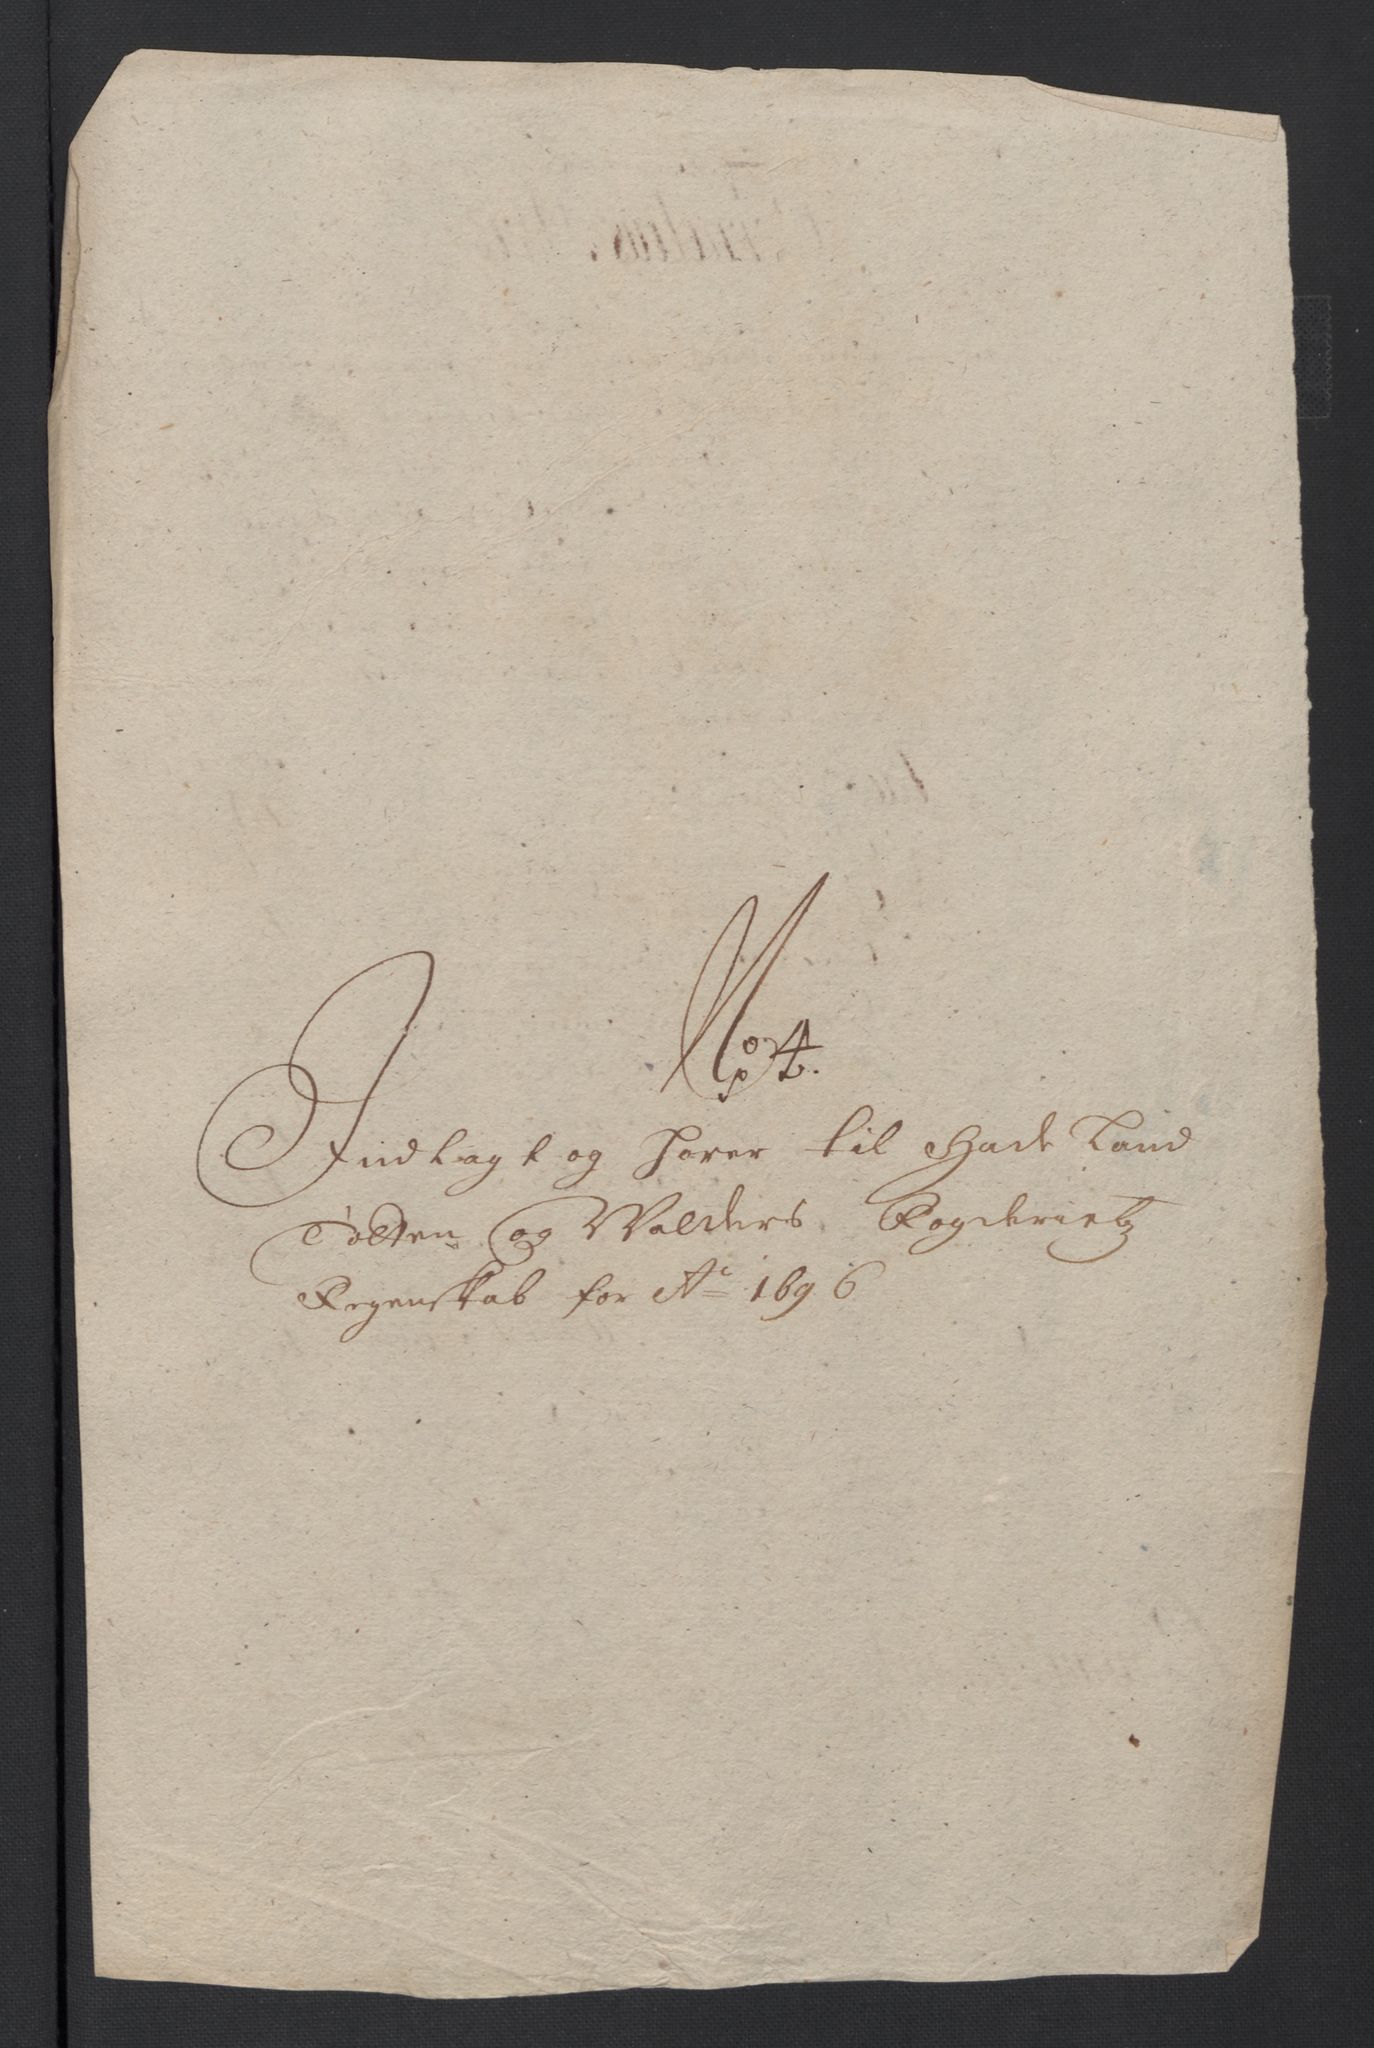 No 4.
Indlagt og hører til Hade Land
Totten og Walders Fogderietz
Regenskab for Ao 1696